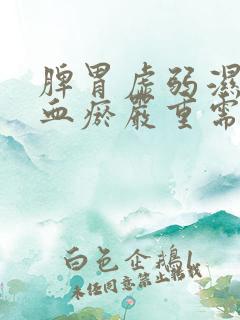 脾胃虚弱濕
血瘀嚴重需
白色企鵝1
未经同意禁止转载